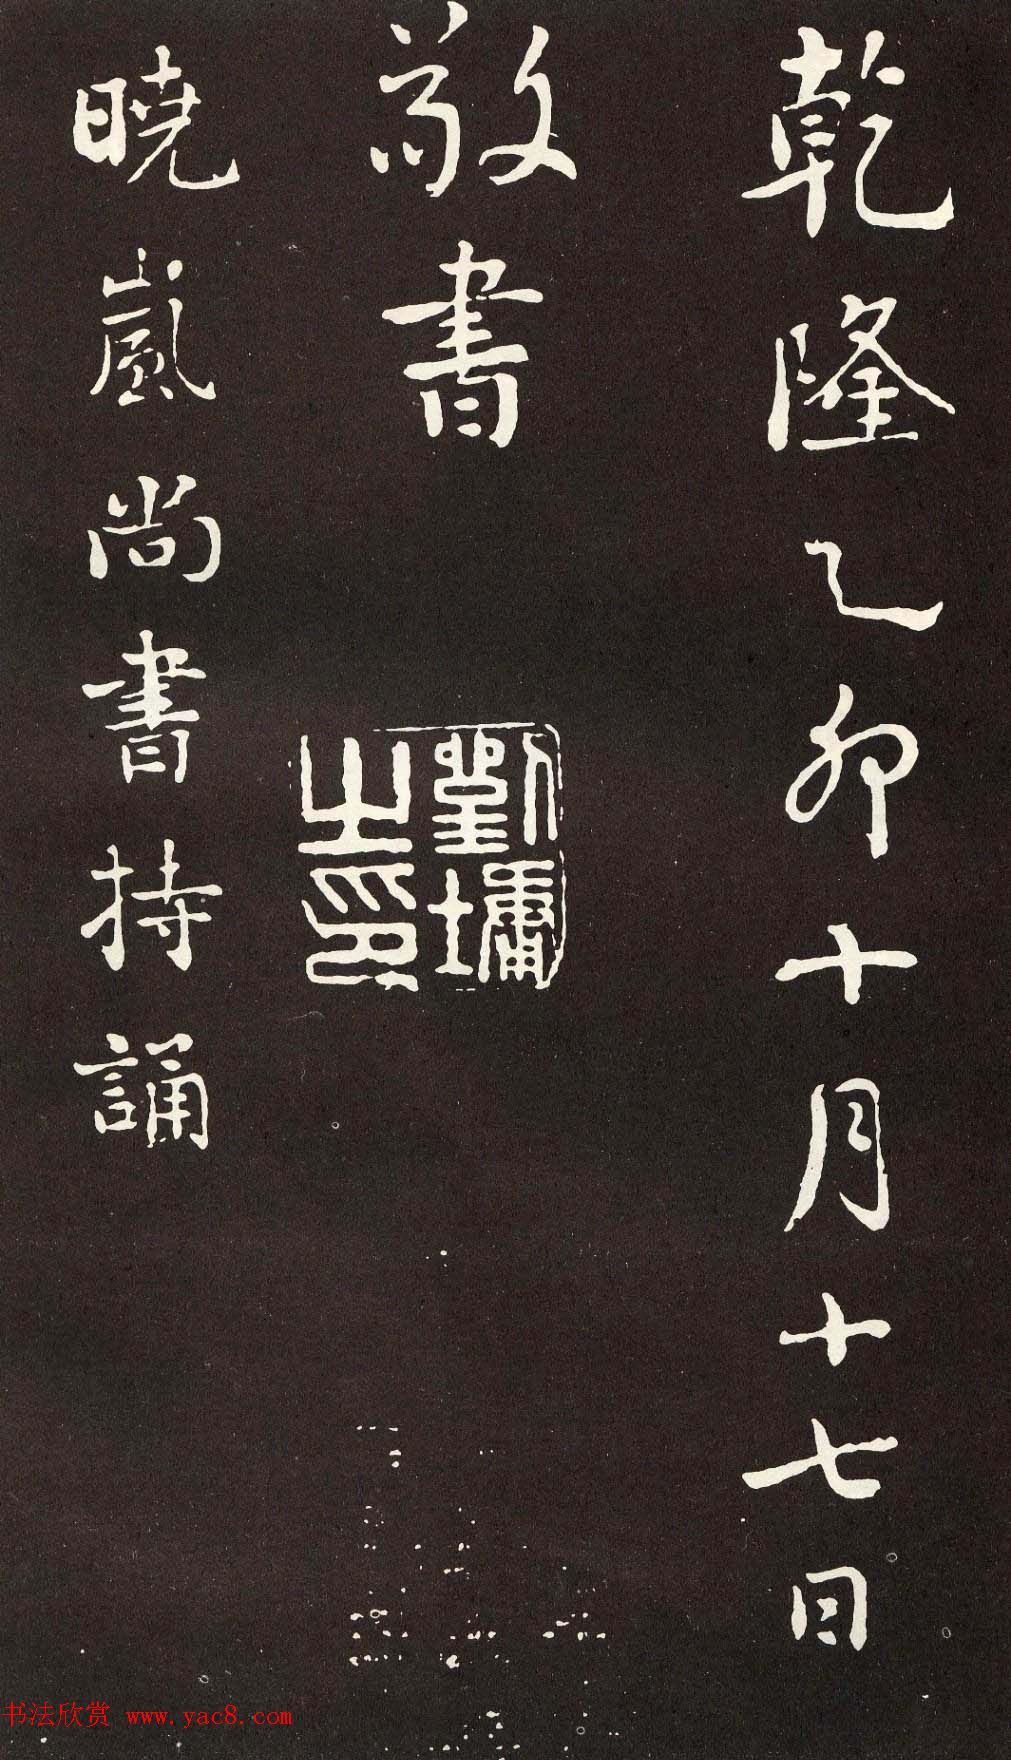 乾隆乙卯十月十七日
敬書
劉墉
之印
曉嵐尚書持誦
书法欣赏 www.yac8.com